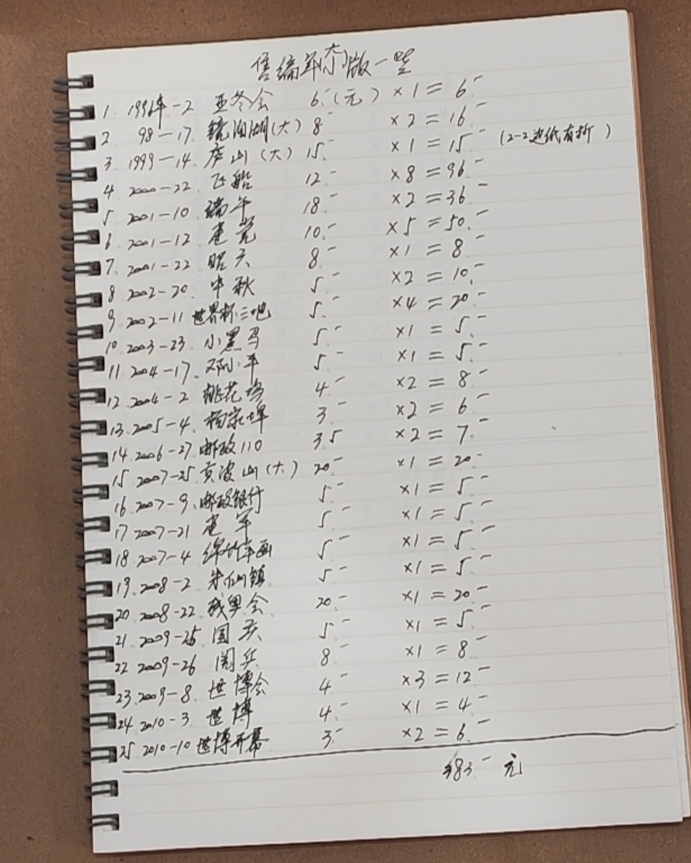 售编年大小版一些
1 1996年-2 亚冬会 6.(元) ×1=6.-
2 98-17 镜泊湖(大) 8- ×2=16-
3 1999-14 庐山(大) 15.- ×1=15- (2-2边纸有折)
4 2000-22 飞船 12.- ×8=96-
5 2001-10 端午 18.- ×2=36-
6 2001-12 建党 10.- ×5=50.-
7. 2001-22 昭天 8.- ×1=8-
8 2002-20 中秋 5.- ×2=10.-
9 2002-11 世界杯三地 5.- ×4=20-
10 2003-23 小黑马 5- ×1=5.-
11 2004-17 邓小平 5- ×1=5.-
12 2004-2 桃花坞 4- ×2=8-
13.2005-4 杨家埠 3- ×2=6-
14 2006-27 邮政110 3.5 ×2=7.-
15 2007-25 贡波山(大) 20- ×1=20-
16 2007-9 邮政银行 5- ×1=5-
17 2007-21 建军 5- ×1=5-
18 2007-4 绵竹年画 5- ×1=5-
19 2008-2 朱仙镇 5- ×1=5-
20 2008-22 残奥会 20- ×1=20-
21 2009-25 国庆 5.- ×1=5-
22 2009-26 阅兵 8- ×1=8-
23.2009-8 世博会 4.- ×3=12-
24.2010-3 世博 4.- ×1=4-
25 2010-10 世博开幕 3- ×2=6.-
383- 元